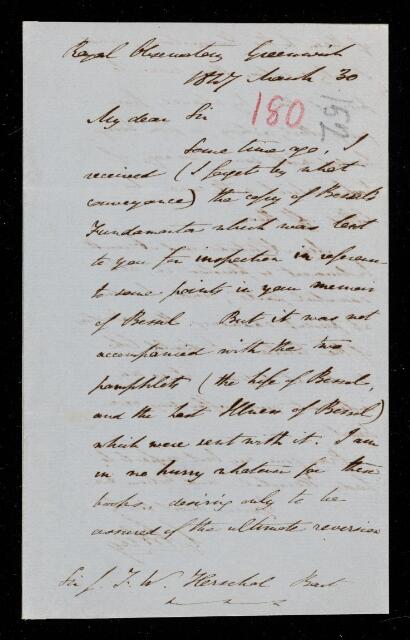 Royal Observatory Greenwich
1847 March 30
180
162
My dear Sir
Some time ago, I
received (I forget by what
conveyance) the copy of Bessel's
Fundamenta which was lent
to you for inspection in reference
to some points in your memoir
of Bessel. But it was not
accompanied with the two
pamphlets (the Life of Bessel,
and the last Illness of Bessel)
which were sent with it. I am
in no hurry whatever for these
books, desiring only to be
assured of the ultimate reversion
Sir J. F. W. Herschel Bart